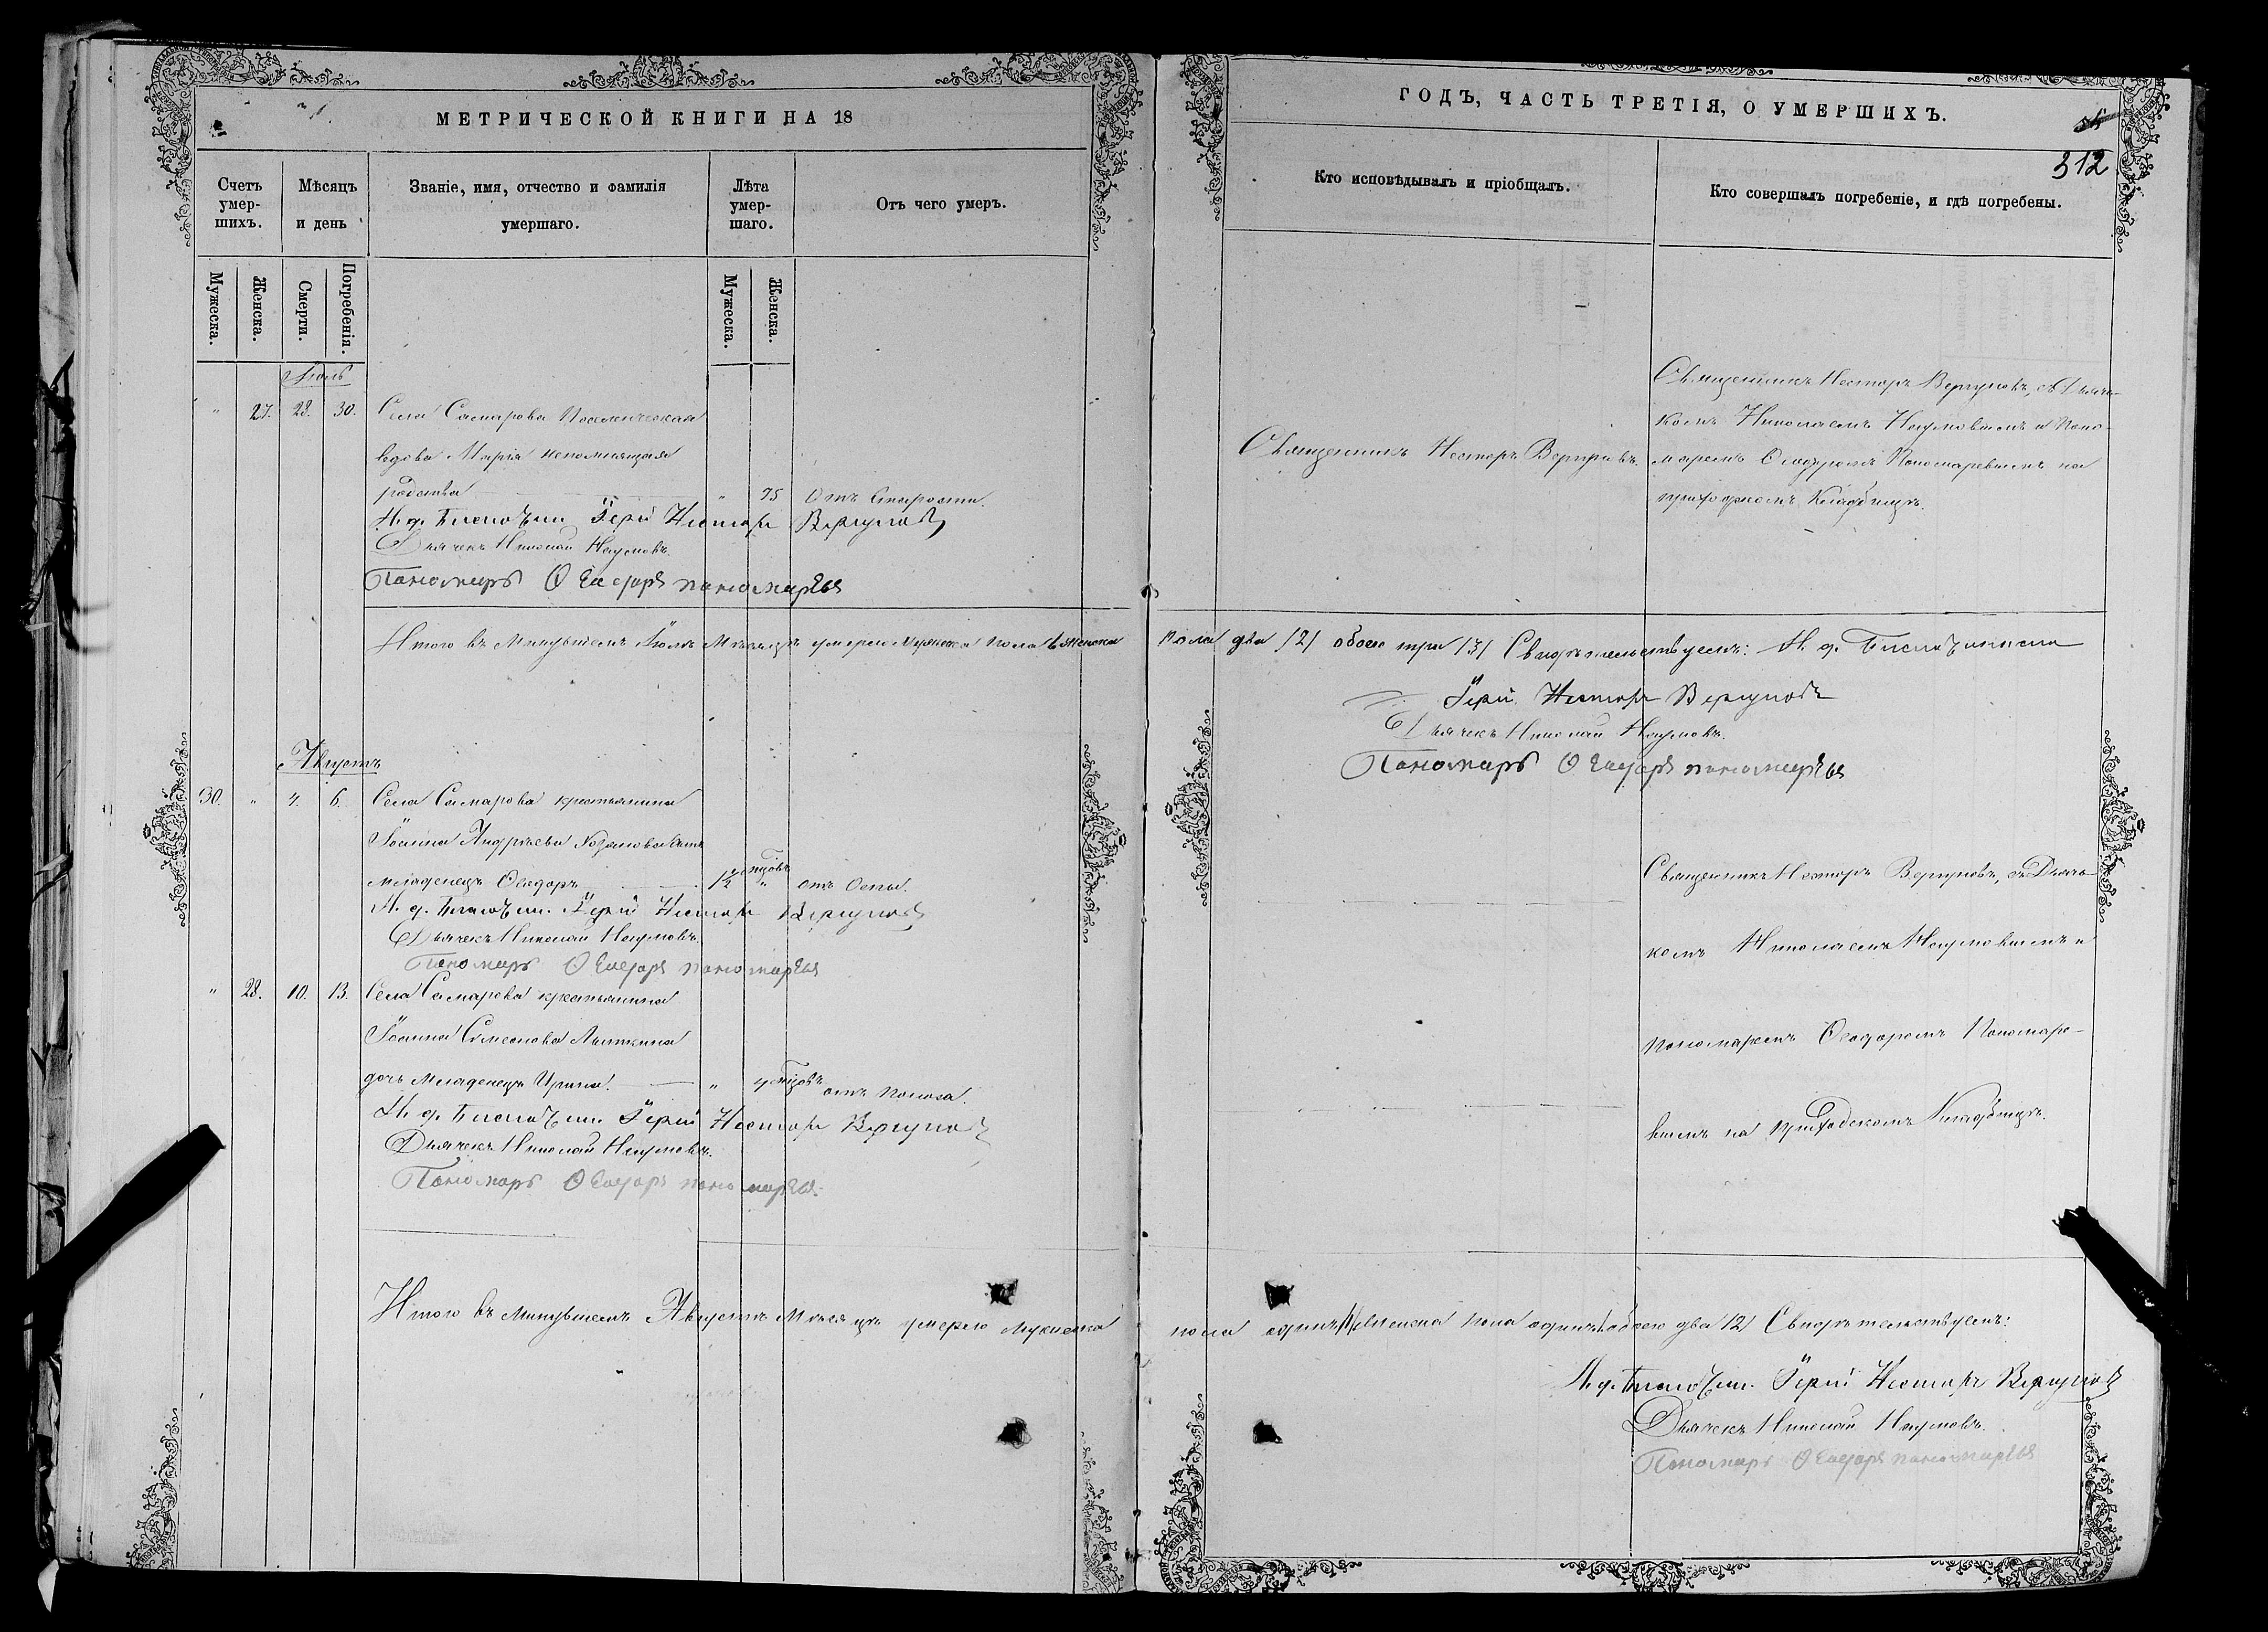 МЕТРИЧЕСКОЙ КНИГИ НА 18
Счетъ умер-шихъ.
Мѣсяцъ и день
Званіе, имя, отчество и фамилія умершаго.
Лѣта умер-шаго.
Отъ чего умеръ.
Мужеска.
Женска.
Смерти.
Погребенія.
Мужеска.
Женска.
Іюль
" 27. 28. 30. Села Самарова Поселенческая
вдова Марія непомнящая
родства " 75 Отъ старости.
И. д. Благочин. Іерей Несторъ Вергуновъ
Дьячекъ Николай Наумовъ.
Пономарь Ѳеодоръ пономаревъ
Итого въ Минувшемъ Іюлѣ Мѣсяцѣ умерло Мужеска пола 1 женска
Августъ
30. " 4. 6. Села Самарова крестьянина
Іоанна Андреева сынъ
младенецъ Ѳеодоръ 1½ мцовъ " отъ Оспы.
И. д. Благочин. Іерей Несторъ Вергуновъ
Дьячекъ Николай Наумовъ.
Пономарь Ѳеодоръ пономаревъ
" 28. 10. 13. Села Самарова крестьянина
Іоанна Симеонова
дочь младенецъ Ирина. " 4 мцовъ отъ поноса.
И. д. Благочин. Іерей Несторъ Вергуновъ
Дьячекъ Николай Наумовъ.
Пономарь Ѳеодоръ пономаревъ.
Итого въ минувшемъ Августѣ Мѣсяцѣ умерло мужеска
ГОДЪ, ЧАСТЬ ТРЕТІЯ, О УМЕРШИХЪ.
312
Кто исповѣдывалъ и пріобщалъ.
Кто совершалъ погребеніе, и гдѣ погребены.
Священникъ Несторъ Вергуновъ.
Священникъ Несторъ Вергуновъ, съ Дьяч-
комъ Николаемъ Наумовымъ и Поно-
маремъ Ѳеодоромъ Пономаревымъ на
приходскомъ кладбищѣ.
пола два /2/ обоего три /3/ Свидѣтельствуемъ: И. д. Благочиннаго
Іерей Несторъ Вергуновъ
Дьячекъ Николай Наумовъ.
Пономарь Ѳеодоръ пономаревъ
Священникъ Несторъ Вергуновъ, съ Дьяч-
комъ Николаемъ Наумовымъ и
Пономаремъ Ѳеодоромъ Пономаре-
вымъ на приходскомъ кладбищѣ.
пола одинъ /1/ женска пола одинъ обоего два /2/ Свидѣтельствуемъ:
И. д. Благочин. Іерей Несторъ Вергуновъ
Дьячекъ Николай Наумовъ.
Пономарь Ѳеодоръ пономаревъ